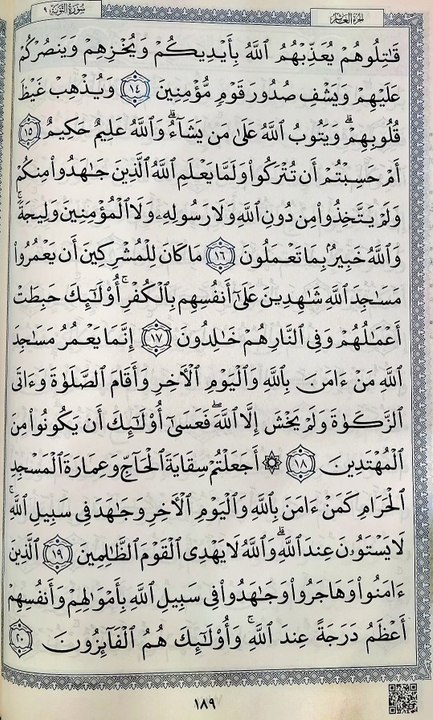 الجزء العاشر
سورة التوبة ٩
قَٰتِلُوهُمْ يُعَذِّبْهُمُ ٱللَّهُ بِأَيْدِيكُمْ وَيُخْزِهِمْ وَيَنصُرْكُمْ
عَلَيْهِمْ وَيَشْفِ صُدُورَ قَوْمٍ مُّؤْمِنِينَ ١٤ وَيُذْهِبْ غَيْظَ
قُلُوبِهِمْۗ وَيَتُوبُ ٱللَّهُ عَلَىٰ مَن يَشَآءُۗ وَٱللَّهُ عَلِيمٌ حَكِيمٌ ١٥
أَمْ حَسِبْتُمْ أَن تُتْرَكُوا۟ وَلَمَّا يَعْلَمِ ٱللَّهُ ٱلَّذِينَ جَٰهَدُوا۟ مِنكُمْ
وَلَمْ يَتَّخِذُوا۟ مِن دُونِ ٱللَّهِ وَلَا رَسُولِهِۦ وَلَا ٱلْمُؤْمِنِينَ وَلِيجَةًۚ
وَٱللَّهُ خَبِيرٌۢ بِمَا تَعْمَلُونَ ١٦ مَا كَانَ لِلْمُشْرِكِينَ أَن يَعْمُرُوا۟
مَسَٰجِدَ ٱللَّهِ شَٰهِدِينَ عَلَىٰٓ أَنفُسِهِم بِٱلْكُفْرِۚ أُو۟لَٰٓئِكَ حَبِطَتْ
أَعْمَٰلُهُمْ وَفِى ٱلنَّارِ هُمْ خَٰلِدُونَ ١٧ إِنَّمَا يَعْمُرُ مَسَٰجِدَ
ٱللَّهِ مَنْ ءَامَنَ بِٱللَّهِ وَٱلْيَوْمِ ٱلْءَاخِرِ وَأَقَامَ ٱلصَّلَوٰةَ وَءَاتَى
ٱلزَّكَوٰةَ وَلَمْ يَخْشَ إِلَّا ٱللَّهَۖ فَعَسَىٰٓ أُو۟لَٰٓئِكَ أَن يَكُونُوا۟ مِنَ
ٱلْمُهْتَدِينَ ١٨ ۞ أَجَعَلْتُمْ سِقَايَةَ ٱلْحَآجِّ وَعِمَارَةَ ٱلْمَسْجِدِ
ٱلْحَرَامِ كَمَنْ ءَامَنَ بِٱللَّهِ وَٱلْيَوْمِ ٱلْءَاخِرِ وَجَٰهَدَ فِى سَبِيلِ ٱللَّهِۚ
لَا يَسْتَوُۥنَ عِندَ ٱللَّهِۗ وَٱللَّهُ لَا يَهْدِى ٱلْقَوْمَ ٱلظَّٰلِمِينَ ١٩ ٱلَّذِينَ
ءَامَنُوا۟ وَهَاجَرُوا۟ وَجَٰهَدُوا۟ فِى سَبِيلِ ٱللَّهِ بِأَمْوَٰلِهِمْ وَأَنفُسِهِمْ
أَعْظَمُ دَرَجَةً عِندَ ٱللَّهِۚ وَأُو۟لَٰٓئِكَ هُمُ ٱلْفَآئِزُونَ ٢٠
١٨٩